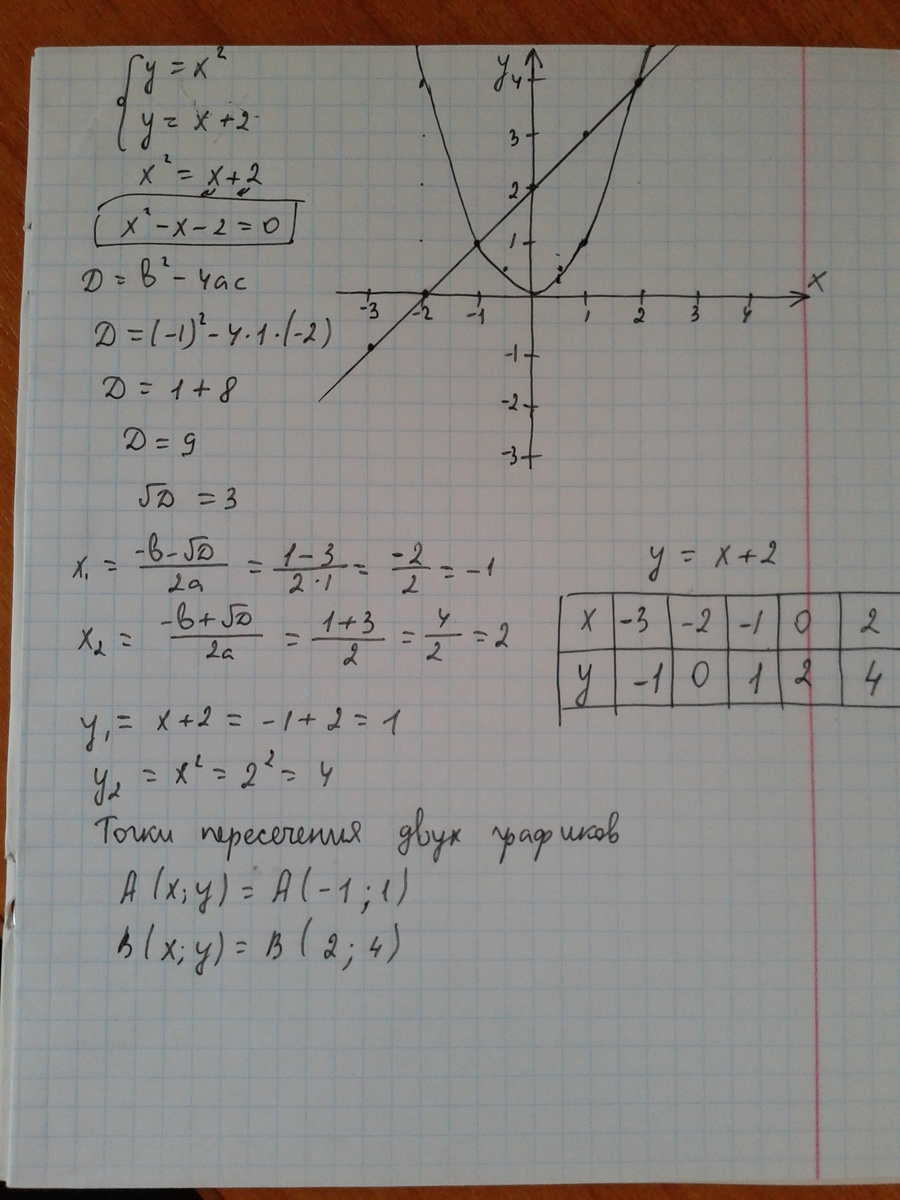 y = x²
y = x + 2
x² = x + 2
x² - x - 2 = 0
D = b² - 4ac
D = (-1)² - 4·1·(-2)
D = 1 + 8
D = 9
√D = 3
x₁ = (-b-√D)/(2a) = (1-3)/(2·1) = (-2)/2 = -1
x₂ = (-b+√D)/(2a) = (1+3)/2 = 4/2 = 2
y₁ = x+2 = -1+2 = 1
y₂ = x² = 2² = 4
Точки пересечения двух графиков
A (x; y) = A (-1; 1)
B (x; y) = B (2; 4)
y
4
3
2
1
-3 -2 -1 1 2 3 4 x
-1
-2
-3
y = x+2
x -3 -2 -1 0 2
y -1 0 1 2 4